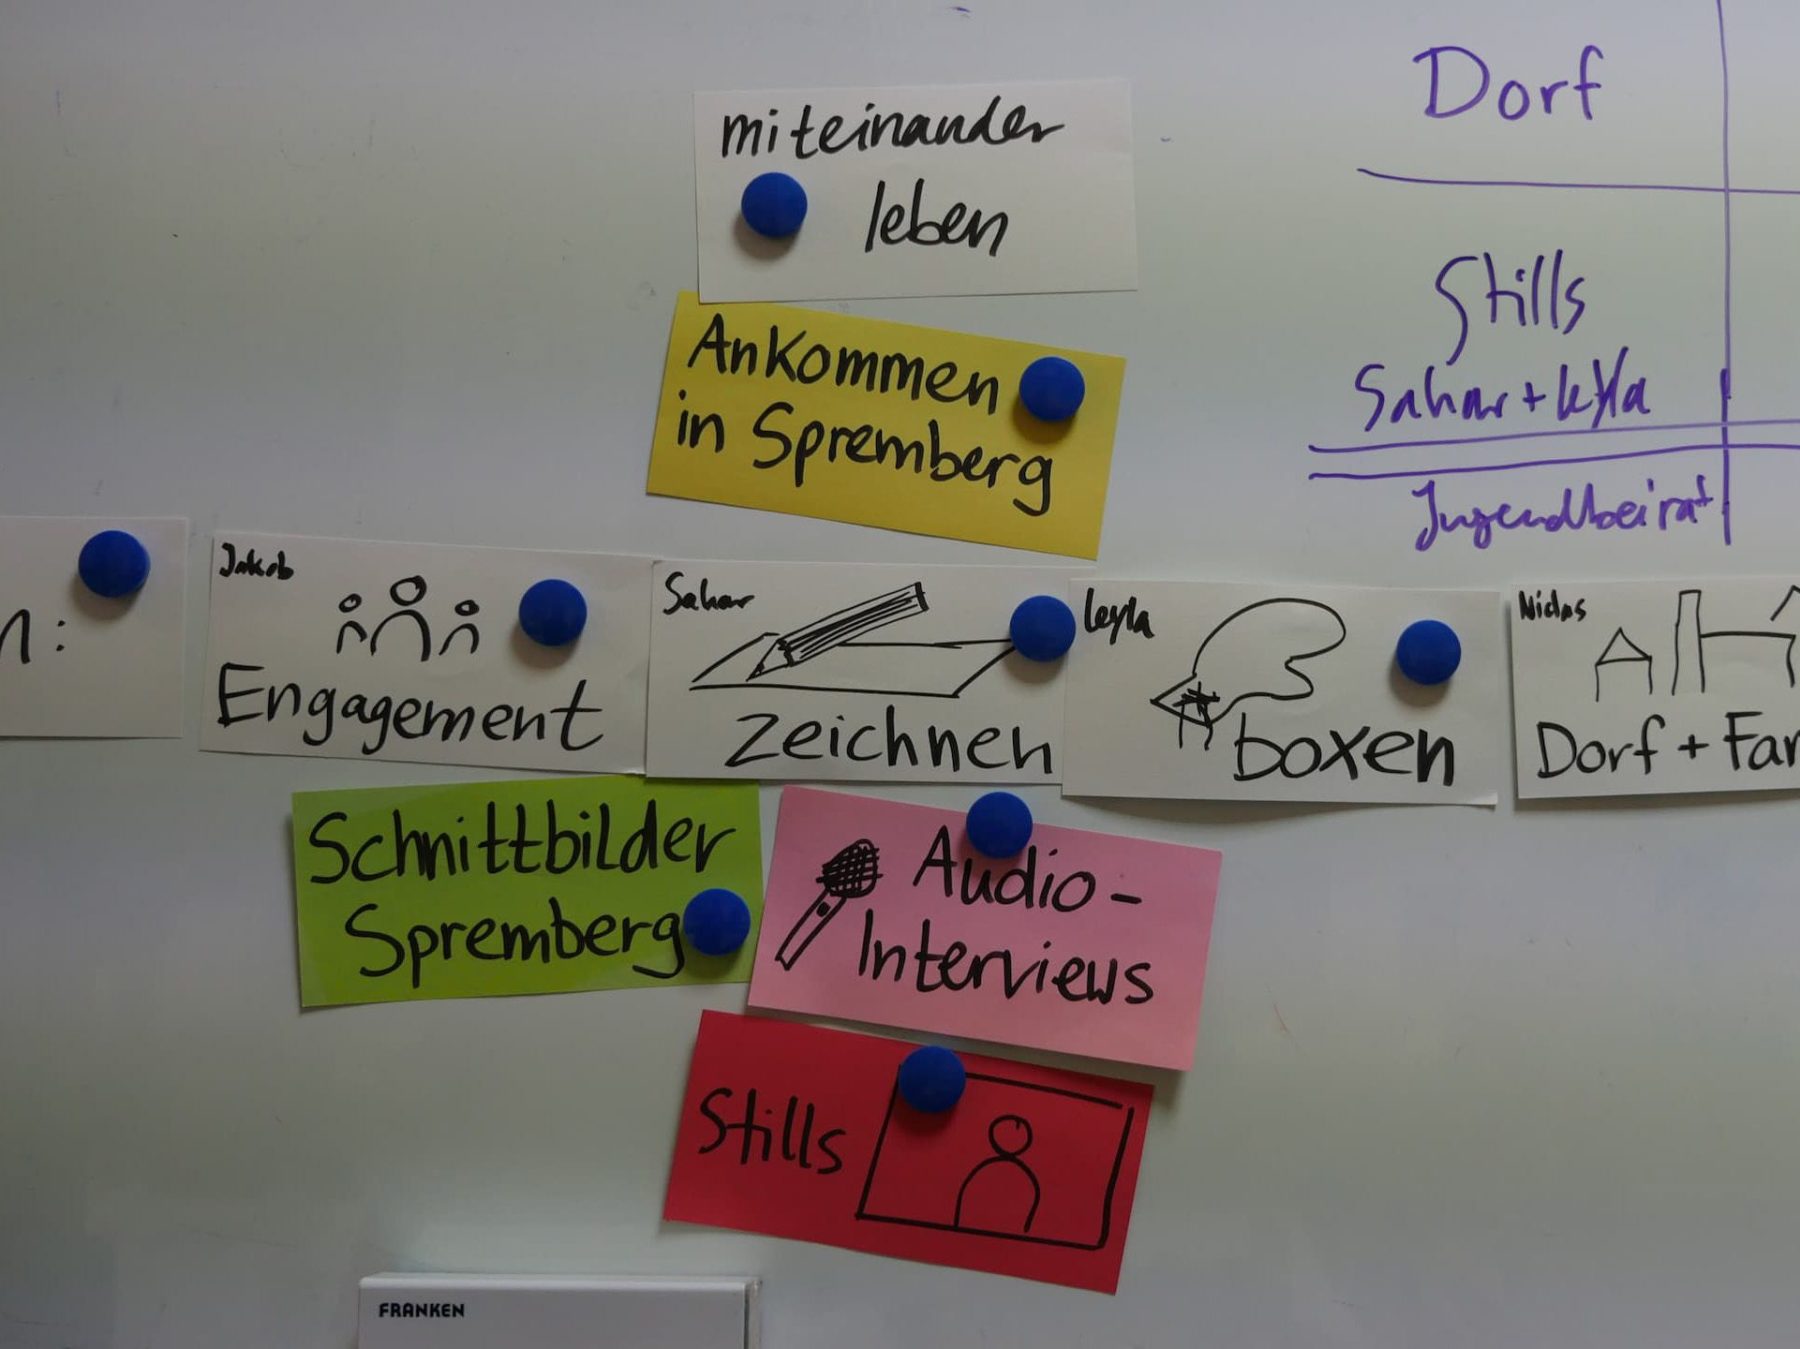 miteinander
leben
Ankommen
in Spremberg
Dorf
Stills
Sahar + leyla
Jugendbeirat
n:
Jakob
Engagement
Sahar
zeichnen
leyla
boxen
Niclas
Dorf + Far
Schnittbilder
Spremberg
Audio-
Interviews
Stills
FRANKEN